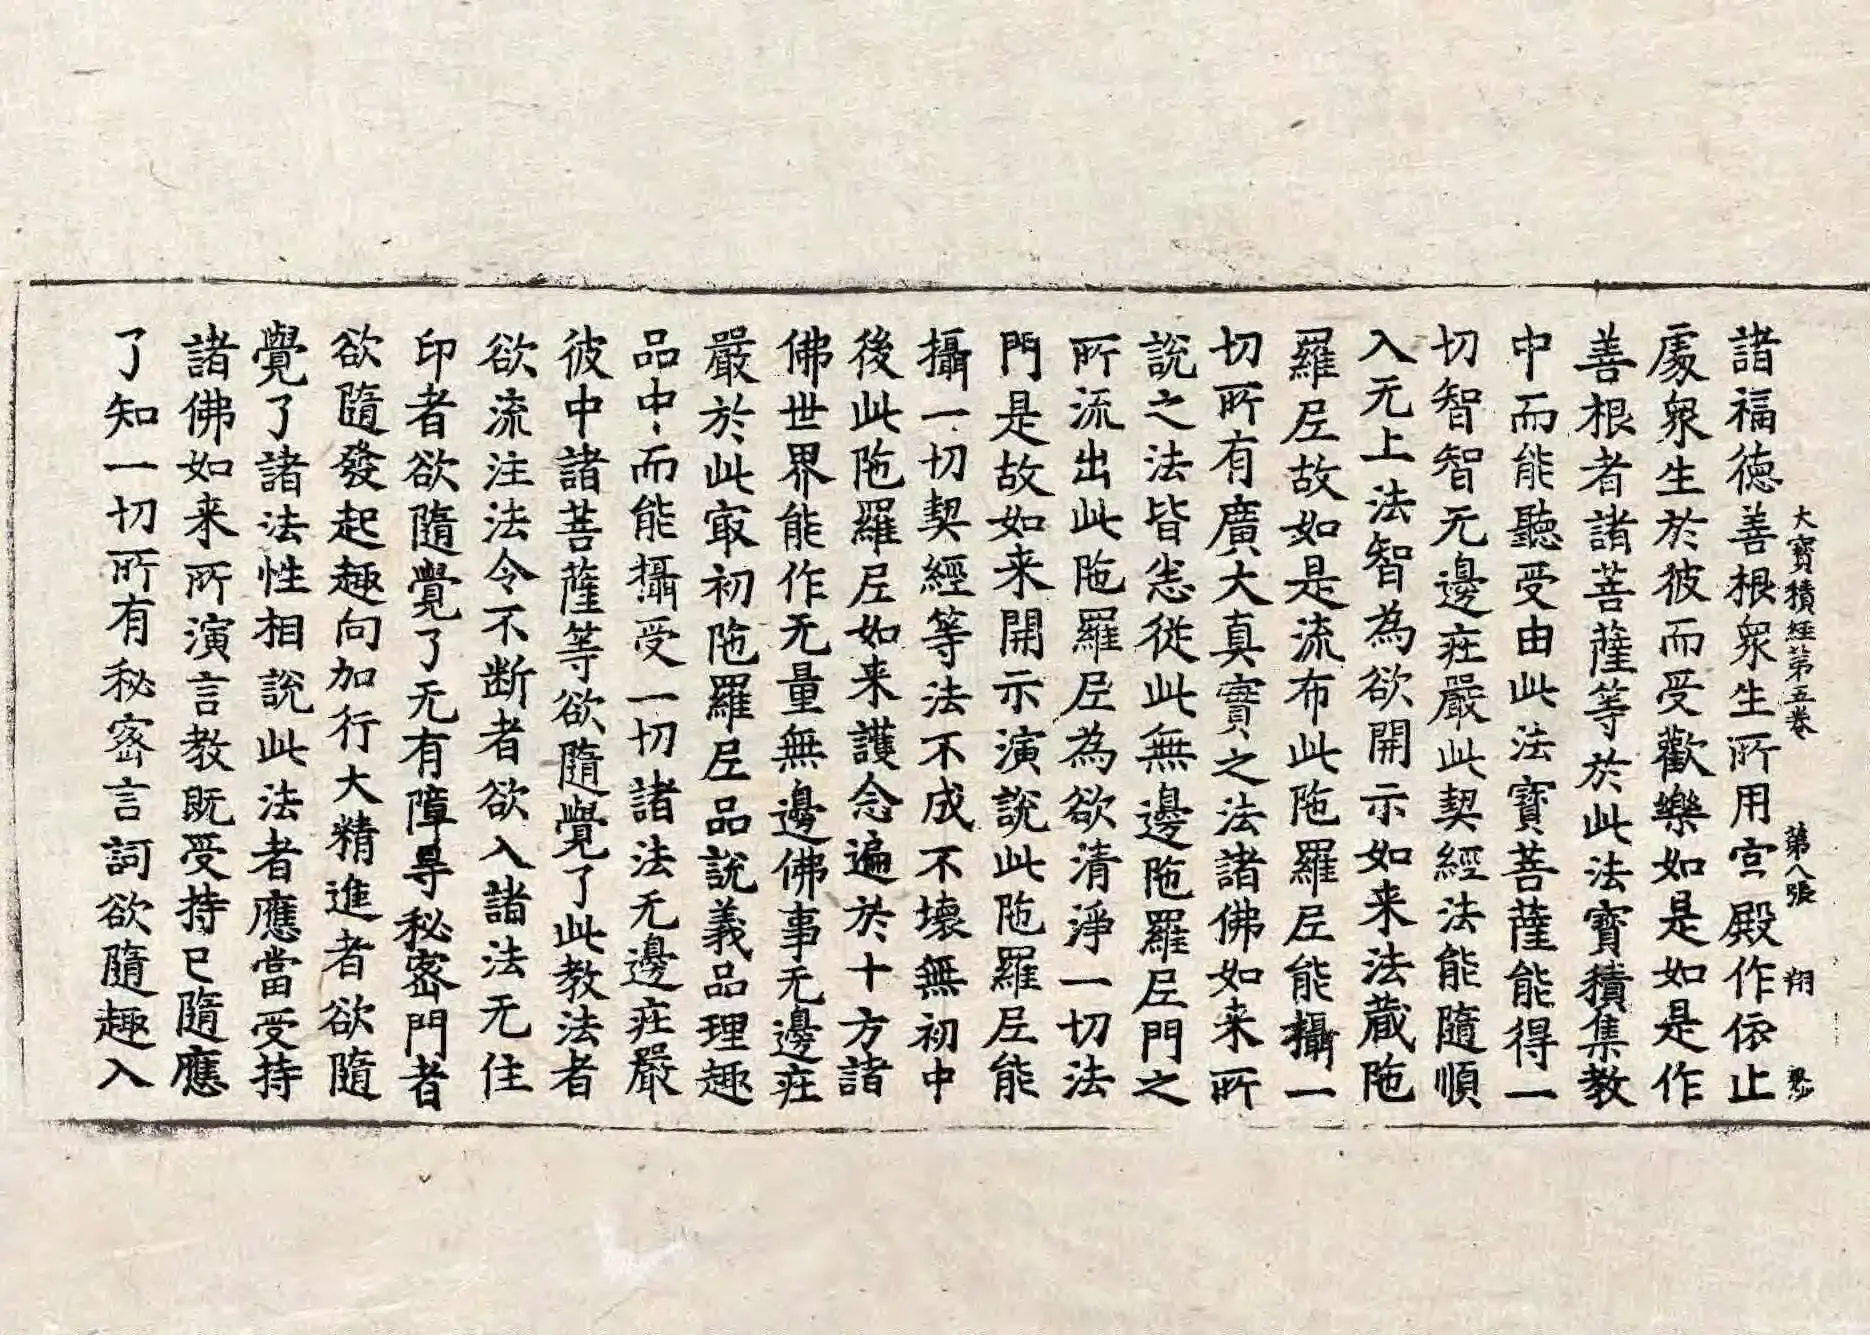 大寶積經第五卷　第八張　翔
諸福德善根衆生所用宮殿作依止
處衆生於彼而受歡樂如是如是作
善根者諸菩薩等於此法寶積集教
中而能聽受由此法寶菩薩能得一
切智智无邊莊嚴此契經法能隨順
入无上法智為欲開示如来法蔵陁
羅尼故如是流布此陁羅尼能攝一
切所有廣大真實之法諸佛如来所
說之法皆悉從此無邊陁羅尼門之
所流出此陁羅尼為欲清淨一切法
門是故如来開示演說此陁羅尼能
攝一切契經等法不成不壞無初中
後此陁羅尼如来護念遍於十方諸
佛世界能作无量無邊佛事无邊莊
嚴於此㝡初陁羅尼品說義品理趣
品中而能攝受一切諸法无邊莊嚴
彼中諸菩薩等欲隨覺了此教法者
欲流注法令不断者欲入諸法无住
印者欲隨覺了无有障㝵秘密門者
欲隨發起趣向加行大精進者欲隨
覺了諸法性相說此法者應當受持
諸佛如来所演言教既受持已隨應
了知一切所有秘密言詞欲隨趣入